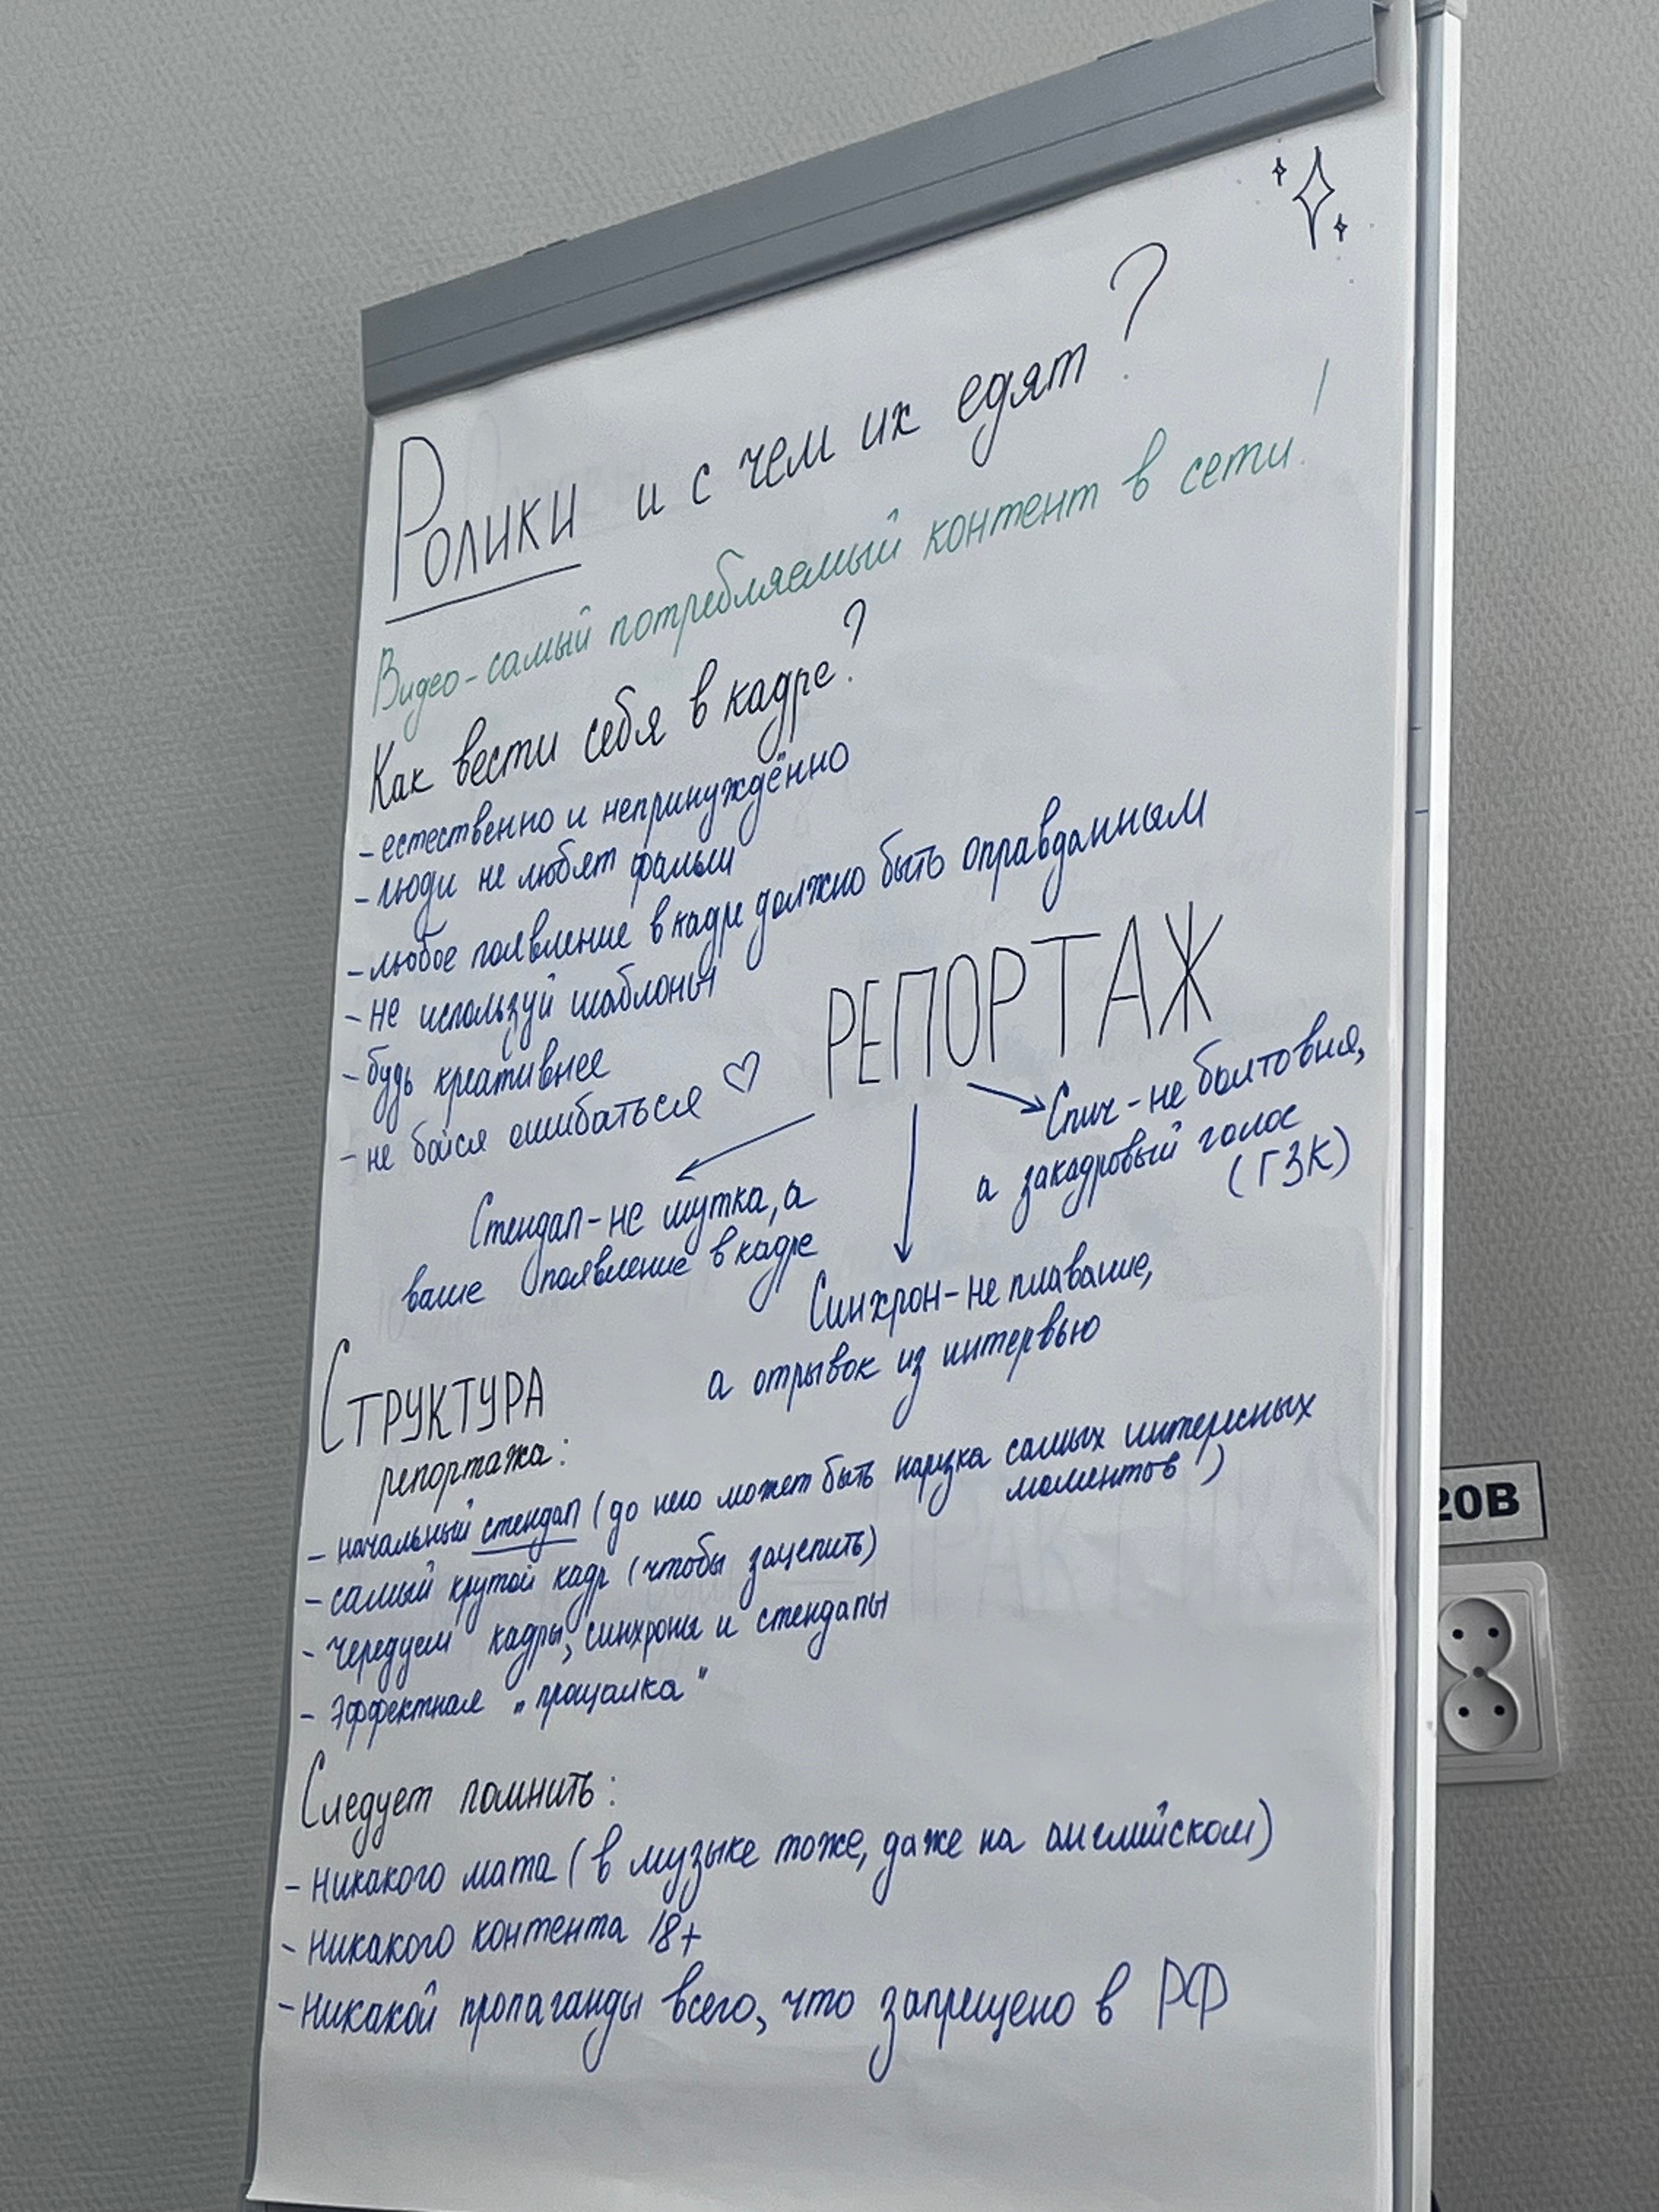 Ролики и с чем их едят?
Видео-самый потребляемый контент в сети!
Как вести себя в кадре?
- естественно и непринуждённо
- люди не любят фальши
- любое появление в кадре должно быть оправданным
- не используй шаблоны
- будь креативнее
- не бойся ошибаться ♡
РЕПОРТАЖ
Стендап-не шутка, а
ваше появление в кадре
Синхрон-не плавание,
а отрывок из интервью
Спич-не болтовня,
а закадровый голос
(ГЗК)
СТРУКТУРА
репортажа:
- начальный стендап (до него может быть нарезка самых интересных
моментов)
- самый крутой кадр (чтобы зацепить)
- чередуем кадры, синхроны и стендапы
- Эффектная „прощалка"
Следует помнить:
- никакого мата (в музыке тоже, даже на английском)
- никакого контента 18+
- никакой пропаганды всего, что запрещено в РФ
20В